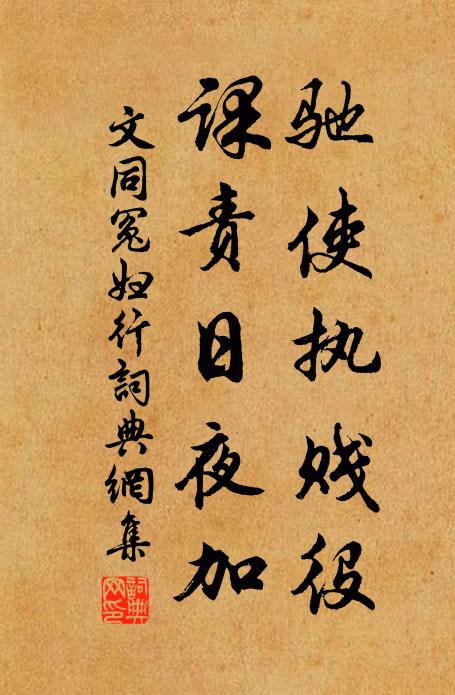 驰使执贱役
课责日夜加
文同冤妇行詞典網集
詞典网印